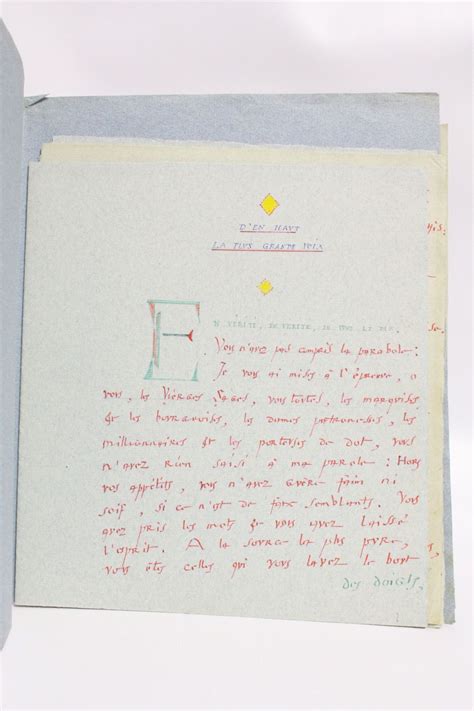 D'EN HAUT
LA PLUS GRANDE VOIX
EN VÉRITÉ, EN VÉRITÉ, JE VOUS LE DIS,
Vous n'avez pas compris la parabole :
Je vous ai mises à l'épreuve, o
vous, les Vierges Sages, vous toutes, les marquises
& les bourgeoises, les dames patronesses, les
millionnaires & les porteuses de dot, vous
n'avez rien saisi à ma parole : Hors
vos appétits, vous n'avez guère faim ni
soif, si ce n'est de faux semblants. Vous
avez pris les mots & vous avez laissé
l'esprit. A la source la plus pure,
vous êtes celles qui vous lavez le bout
des doigts,